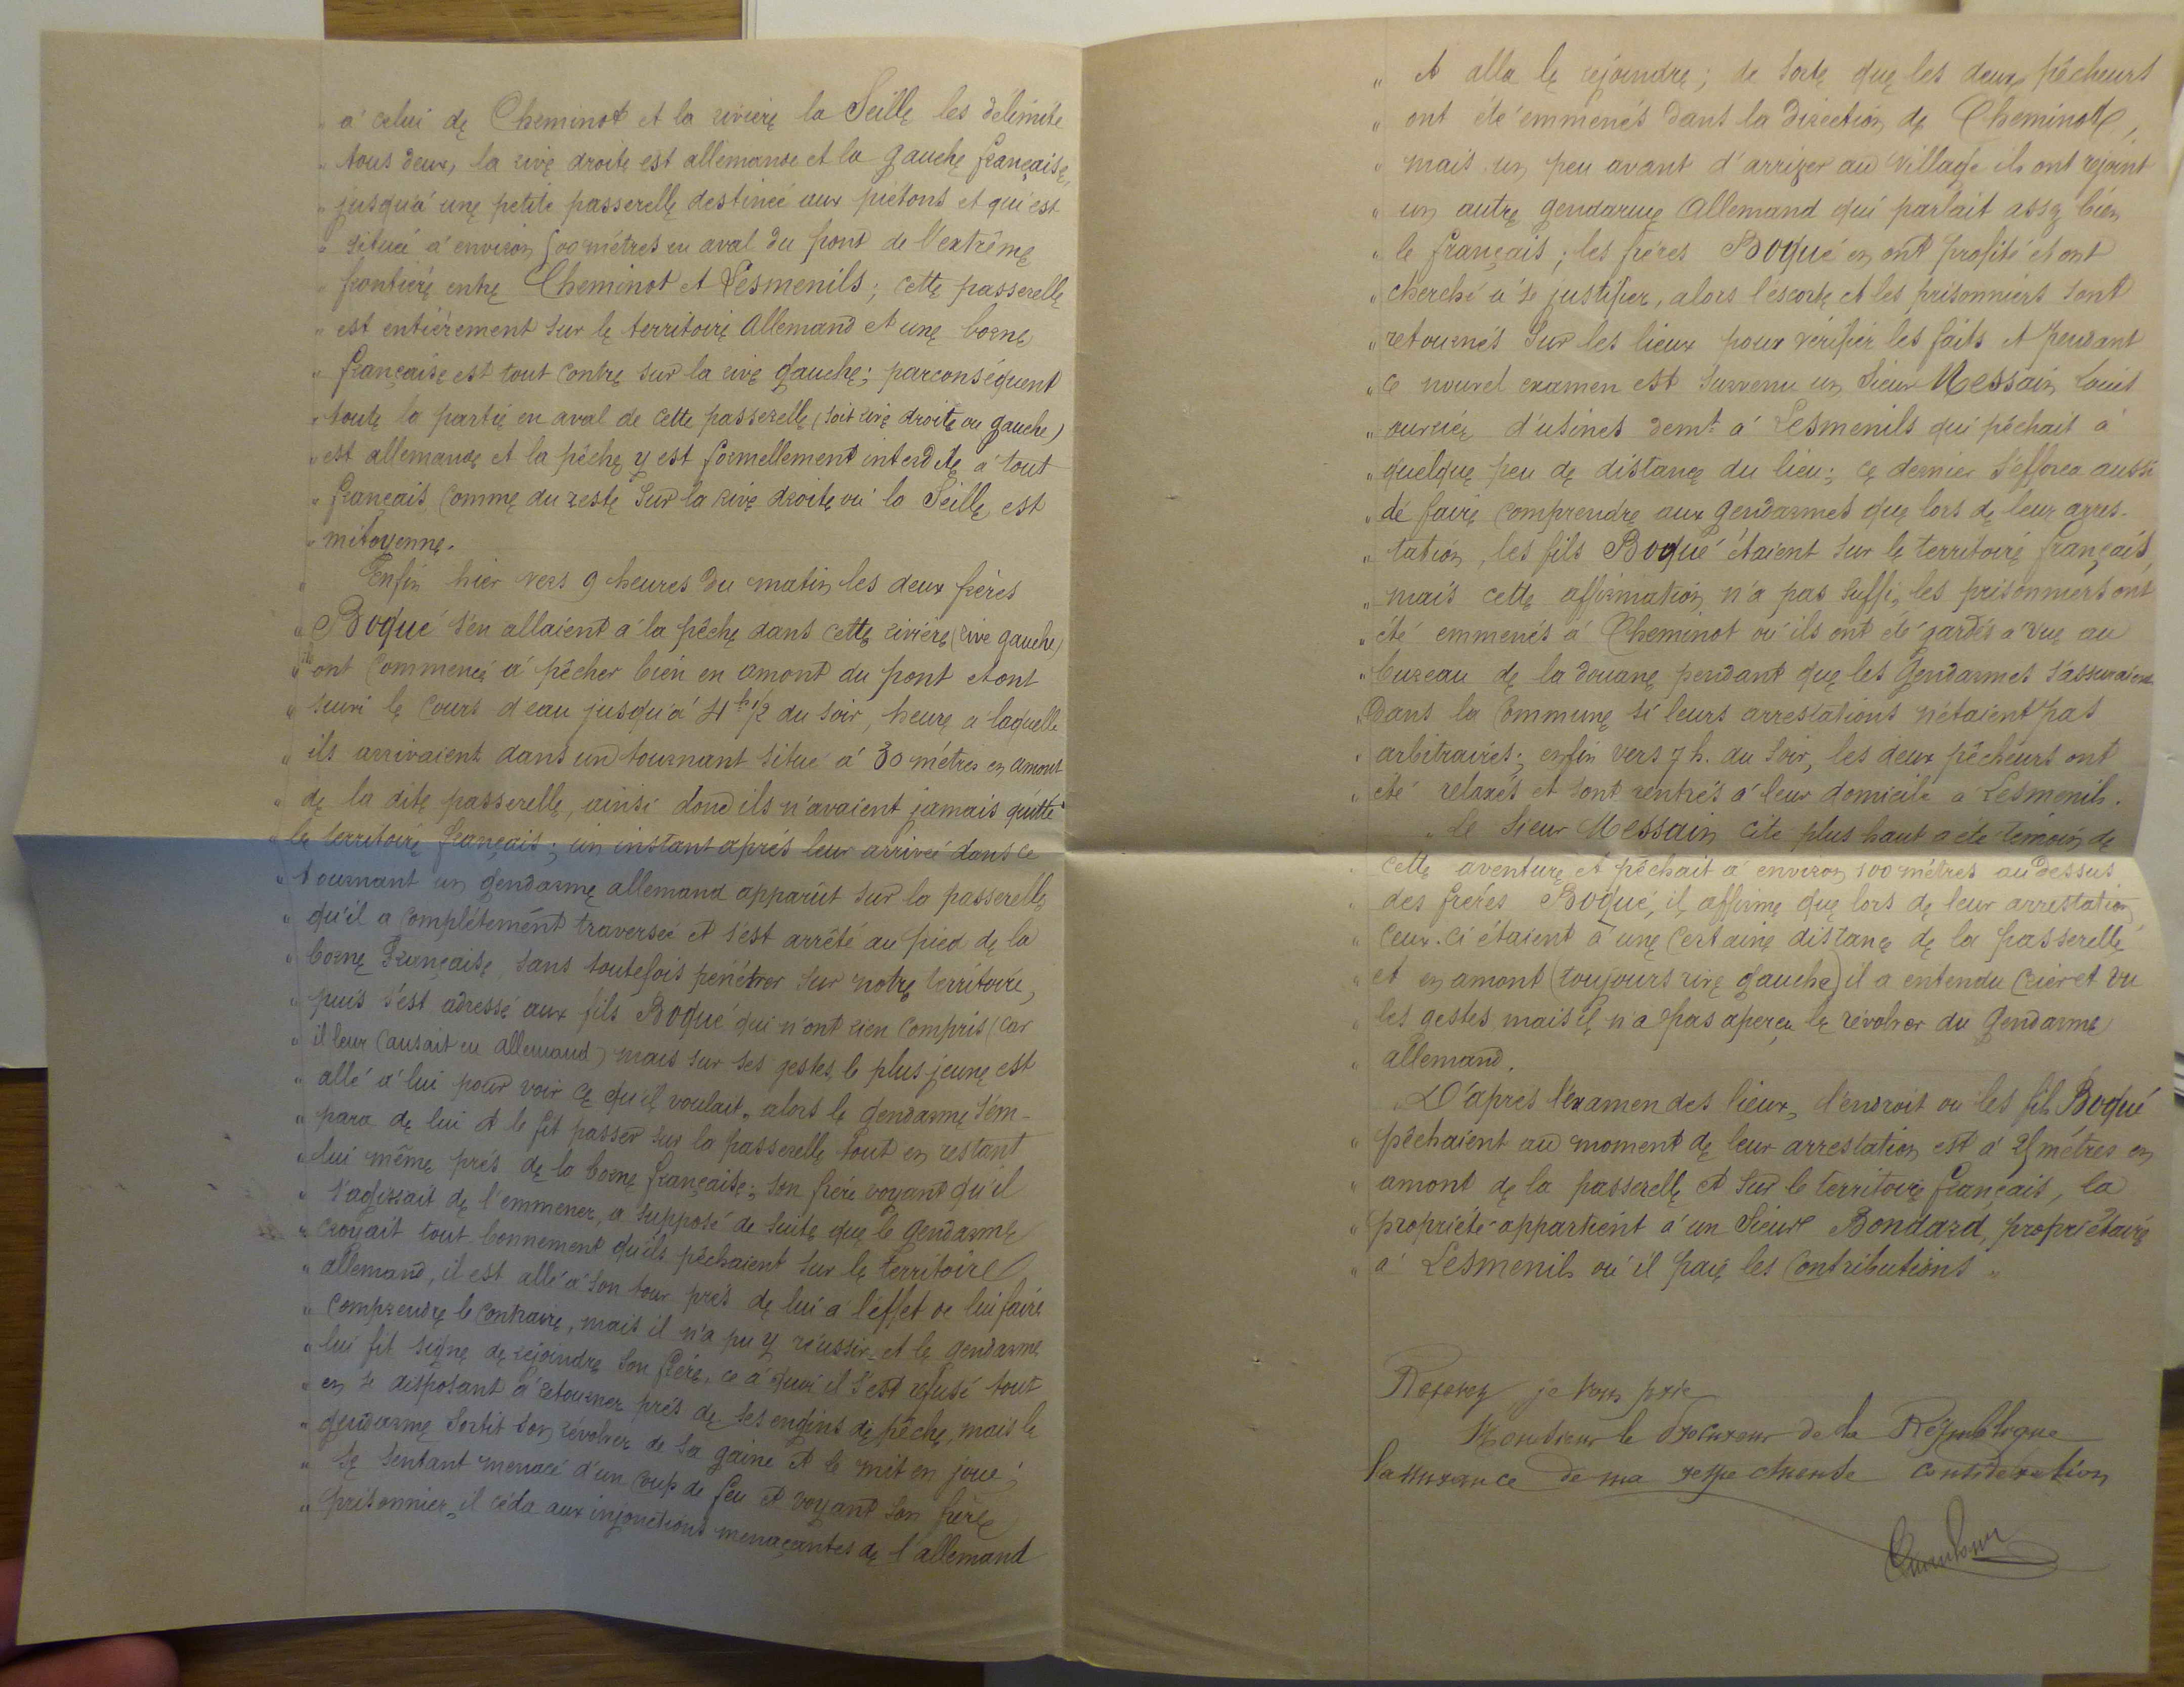 " à celui de Cheminot et la rivière la Seille les délimite
" tous deux, la rive droite est allemande et la gauche française,
" jusqu'à une petite passerelle destinée aux piétons et qui est
" située à environ 500 mètres en aval du pont de l'extrême
" frontière entre Cheminot et Lesmenils; cette passerelle
" est entièrement sur le territoire Allemand et une borne
" française est tout contre sur la rive gauche; parconséquent
" toute la partie en aval de cette passerelle (soit rive droite ou gauche)
" est allemande et la pêche y est formellement interdite à tout
" français comme du reste sur la rive droite où la Seille est
" mitoyenne.
" Enfin hier vers 9 heures du matin les deux frères
" Boqué s'en allaient à la pêche dans cette rivière (rive gauche)
" ils ont commencé à pêcher bien en amont du pont et ont
" suivi le cours d'eau jusqu'à 4 h 1/2 du soir, heure à laquelle
" ils arrivaient dans un tournant situé à 30 mètres en amont
" de la dite passerelle, ainsi donc ils n'avaient jamais quitté
" le territoire français; un instant après leur arrivée dans ce
" tournant un gendarme allemand apparût sur la passerelle
" qu'il a complétement traversée et s'est arrêté au pied de la
" borne Française sans toutefois pénétrer sur notre territoire,
" puis s'est adressé aux fils Boqué qui n'ont rien compris (car
" il leur causait en allemand) mais sur ses gestes, le plus jeune est
" allé à lui pour voir ce qu'il voulait, alors le gendarme s'em-
" para de lui et le fit passer sur la passerelle tout en restant
" lui même près de la borne française; son frère voyant qu'il
" s'agissait de l'emmener, a supposé de suite que le gendarme
" croyait tout-bonnement qu'ils pêchaient sur le territoire
" allemand, il est allé à son tour près de lui à l'effet de lui faire
" comprendre le contraire, mais il n'a pu y réussir et le gendarme
" lui fit signe de rejoindre son frère, ce à quoi il s'est refusé tout
" en se disposant à retourner près de ses engins de pêche, mais le
" gendarme sortit son révolver de sa gaine et le mit en joue;
" se sentant menacé d'un coup de feu et voyant son frère
" prisonnier, il céda aux injonctions menaçantes de l'allemand
" et alla le rejoindre; de sorte que les deux pêcheurs
" ont été emmenés dans la direction de Cheminot,
" mais un peu avant d'arriver au village ils ont rejoint
" un autre gendarme Allemand qui parlait assez bien
" le français; les frères Boqué en ont profité et ont
" cherché à se justifier, alors l'escorte et les prisonniers sont
" retournés sur les lieux pour vérifier les faits et pendant
" ce nouvel examen est survenu un sieur Messain Louis
" ouvrier d'usines demt à Lesmenils qui pêchait à
" quelque peu de distance du lieu; ce dernier s'efforça aussi
" de faire comprendre aux gendarmes que lors de leur arres-
" tation, les fils Boqué étaient sur le territoire français,
" mais cette affirmation n'a pas suffi, les prisonniers ont
" été emmenés à Cheminot où ils ont été gardés à vue au
" bureau de la douane pendant que les gendarmes s'assuraient
" dans la commune si leurs arrestations n'étaient pas
" arbitraires; enfin vers 7 h. du soir, les deux pêcheurs ont
" été relaxés et sont rentrés à leur domicile à Lesmenils.
" Le sieur Messain cité plus haut a été témoin de
" cette aventure et pêchait à environ 100 mètres au dessus
" des frères Boqué, il affirme que lors de leur arrestation,
" ceux-ci étaient à une certaine distance de la passerelle
" et en amont (toujours rive gauche) il a entendu crier et vu
" les gestes mais il n'a pas aperçu le révolver du gendarme
" allemand.
" D'après l'examen des lieux, l'endroit où les fils Boqué
" pêchaient au moment de leur arrestation est à 25 mètres en
" amont de la passerelle et sur le territoire français, la
" propriété appartient à un sieur Bondard, propriétaire
" à Lesmenils où il paie les contributions "
Recevez, je vous prie
Monsieur le Procureur de la République
l'assurance de ma respectueuse considération